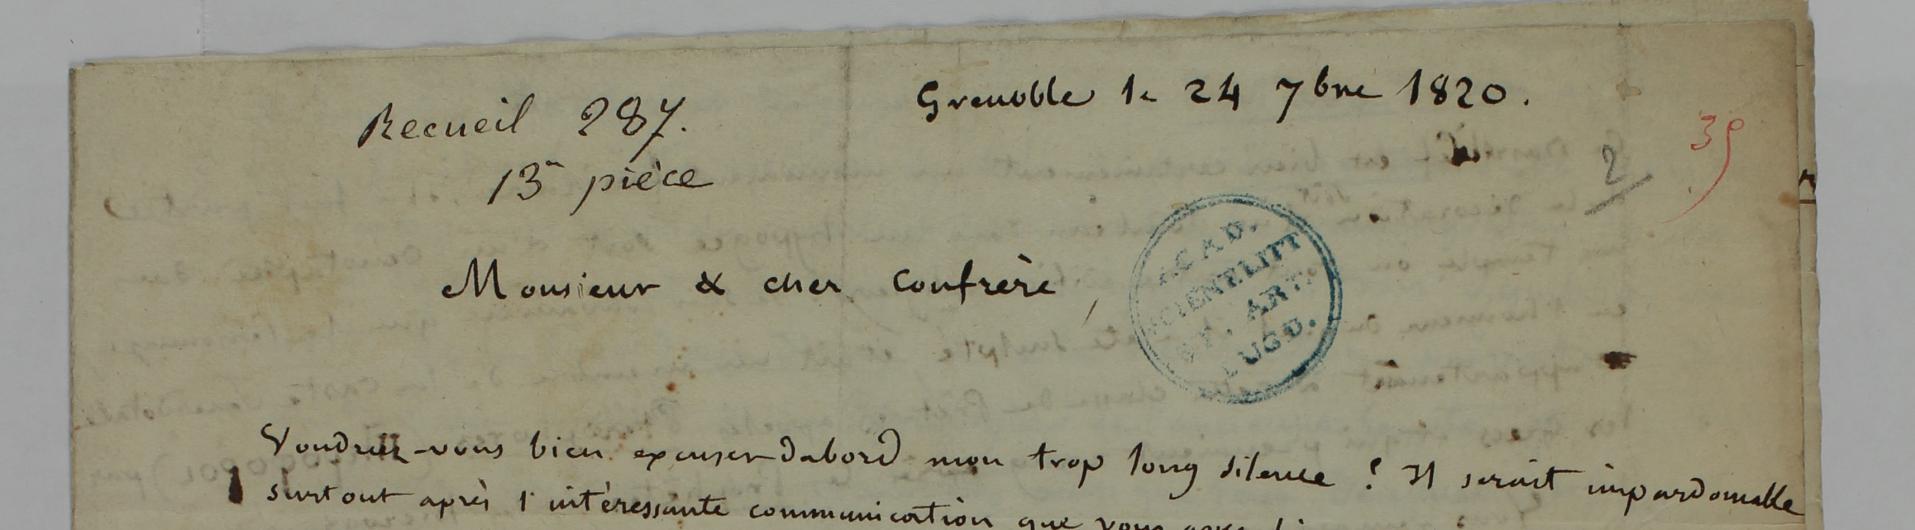 Grenoble le 24 7bre 1820.
Recueil 287.
39
2
13e pièce
ACAD.
SCIENT. LITT
ET. ART.
LUGD.
Monsieur & cher Confrère,
Voudrez-vous bien excuser dabord mon trop long silence ? Il serait impardonnable
surtout après l'intéressante communication que vous avez